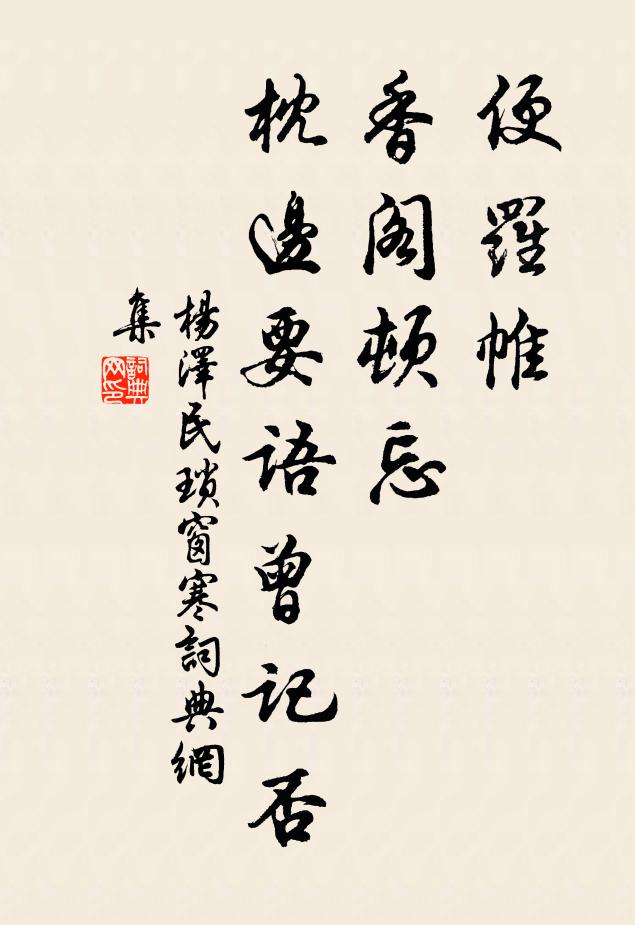 便羅帷
香阁頓忘
枕邊要語曾記否
楊澤民瑣窗寒詞典網
集
詞典
网印